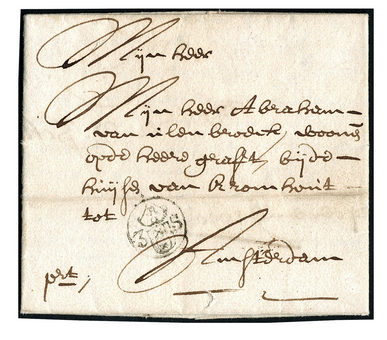 Mijn heer
Mijn heer Abraham
van uÿlenbroeck, woonen
opde heere graft, bijde
huijse van Kromhout
tot
3 S
Amsterdam
prt